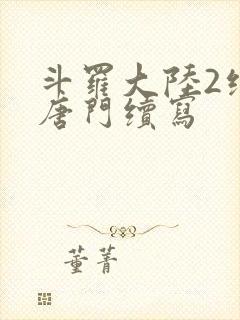 斗羅大陸2
唐門續寫
董菁